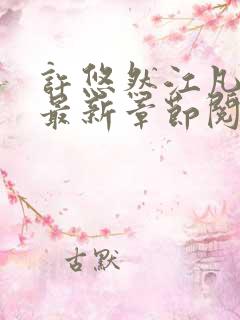 許悠然江凡
最新章節閱
古默